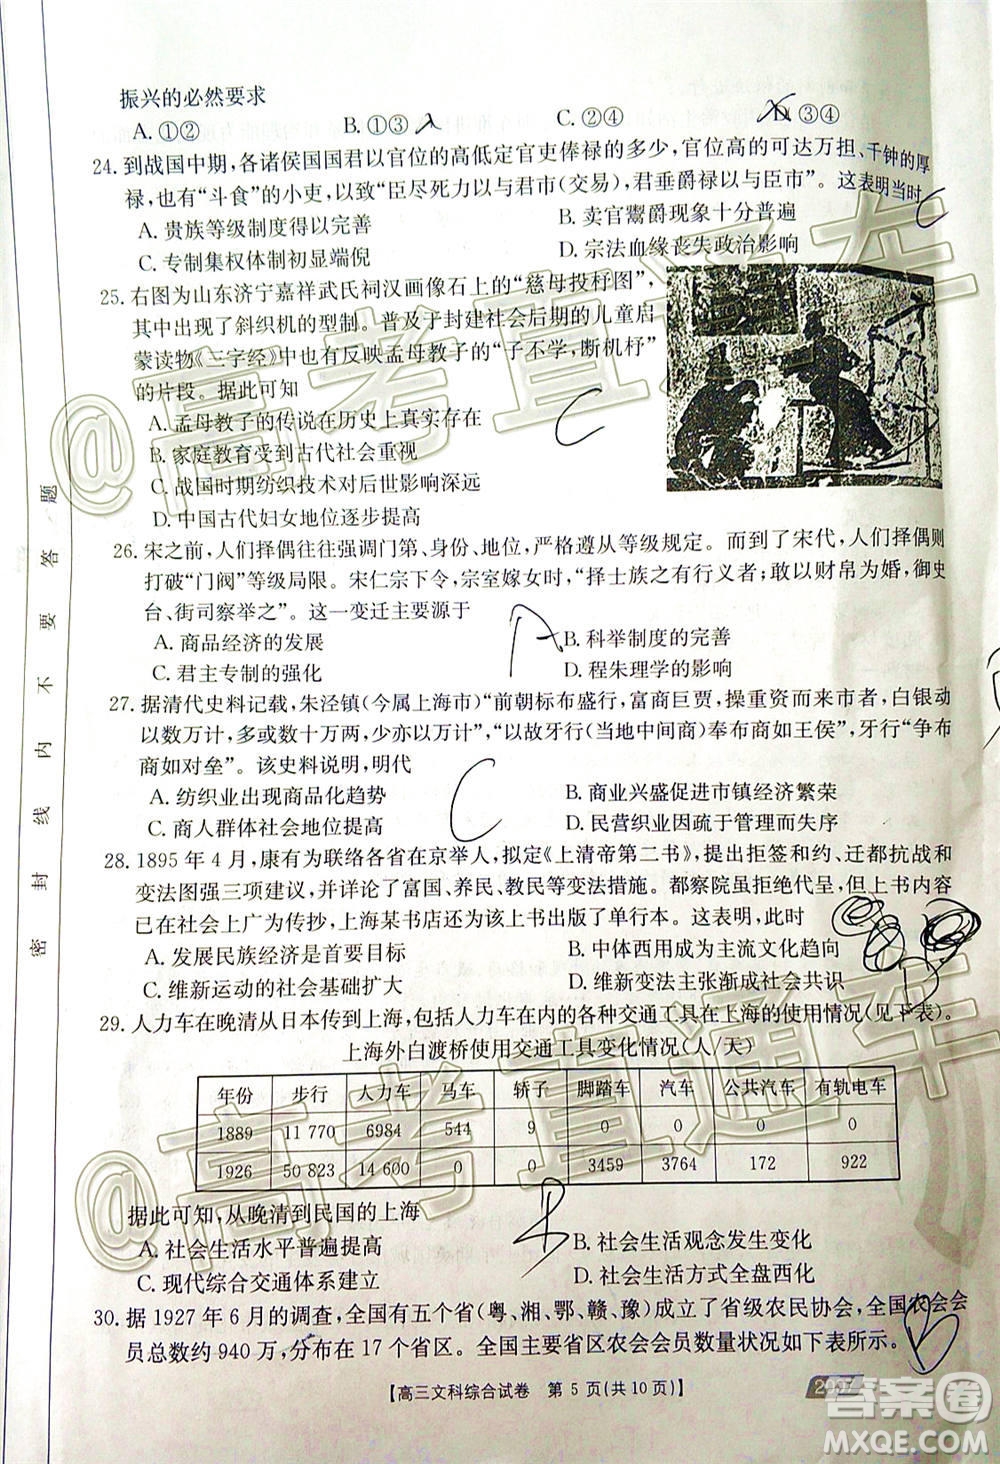 振兴的必然要求
A. ①② B. ①③ C. ②③ D. ③④
24. 到战国中期，各诸侯国国君以官位的高低定官吏俸禄的多少，官位高的可达万担、千钟的厚
禄，也有“斗食”的小吏，以致“臣尽死力以与君市(交易)，君垂爵禄以与臣市”。这表明当时 C
A. 贵族等级制度得以完善 B. 卖官鬻爵现象十分普遍
C. 专制集权体制初显端倪 D. 宗法血缘丧失政治影响
25. 右图为山东济宁嘉祥武氏祠汉画像石上的“慈母投杼图”，
其中出现了斜织机的型制。普及于封建社会后期的儿童启
蒙读物《三字经》中也有反映孟母教子的“子不学，断机杼”
的片段。据此可知
A. 孟母教子的传说在历史上真实存在 C
B. 家庭教育受到古代社会重视
C. 战国时期纺织技术对后世影响深远
D. 中国古代妇女地位逐步提高
26. 宋之前，人们择偶往往强调门第、身份、地位，严格遵守等级规定。而到了宋代，人们择偶则
打破“门阀”等级局限。宋仁宗下令，宗室嫁女时，“择士族之有行义者；敢以财帛为婚，御史
台、街司察举之”。这一变迁主要源于 A
A. 商品经济的发展 B. 科举制度的完善
C. 君主专制的强化 D. 程朱理学的影响
27. 据清代史料记载，朱泾镇(今属上海市)“前朝标布盛行，富商巨贾，操重资而来市者，白银动
以数万计，多或数十万两，少亦以万计”，“以故牙行(当地中间商)奉布商如王侯”，牙行“争布
商如对垒”。该史料说明，明代 C
A. 纺织业出现商品化趋势 B. 商业兴盛促进市镇经济繁荣
C. 商人群体社会地位提高 D. 民营织业因疏于管理而失序
28. 1895 年 4 月，康有为联络各省在京举人，拟定《上清帝第二书》，提出拒和、迁都抗战和
变法图强三项建议，并详论了富国、养民、教民等变法措施。都察院虽拒绝代呈，但上书内容
已在社会上广为传抄，上海某书店还为该上书出版了单行本。这表明，此时
A. 发展民族经济是首要目标 B. 中体西用成为主流文化趋向
C. 维新运动的社会基础扩大 D. 维新变法主张渐成社会共识
29. 人力车在晚清从日本传到上海，包括人力车在内的各种交通工具在上海的使用情况(见下表)。
上海外白渡桥使用交通工具变化情况(人/天)
年份 步行 人力车 马车 轿子 脚踏车 汽车 公共汽车 有轨电车
1889 11 770 6984 544 9 0 0 0 0
1926 50 823 14 600 0 0 3459 3764 172 922
据此可知，从晚清到民国的上海 B
A. 社会生活水平普遍提高 B. 社会生活观念发生变化
C. 现代综合交通体系建立 D. 社会生活方式全盘西化
30. 据 1927 年 6 月的调查，全国有五个省(粤、湘、鄂、赣、豫)成立了省级农民协会，全国农会会
员总数约 940 万，分布在 17 个省区。全国主要省区农会会员数量状况如下表所示。 B
【高三文科综合试卷 第 5 页(共 10 页)】
密 封 线 内 不 要 答 题
@高考直通车
@高考直通车
答案圈
MXQE.COM